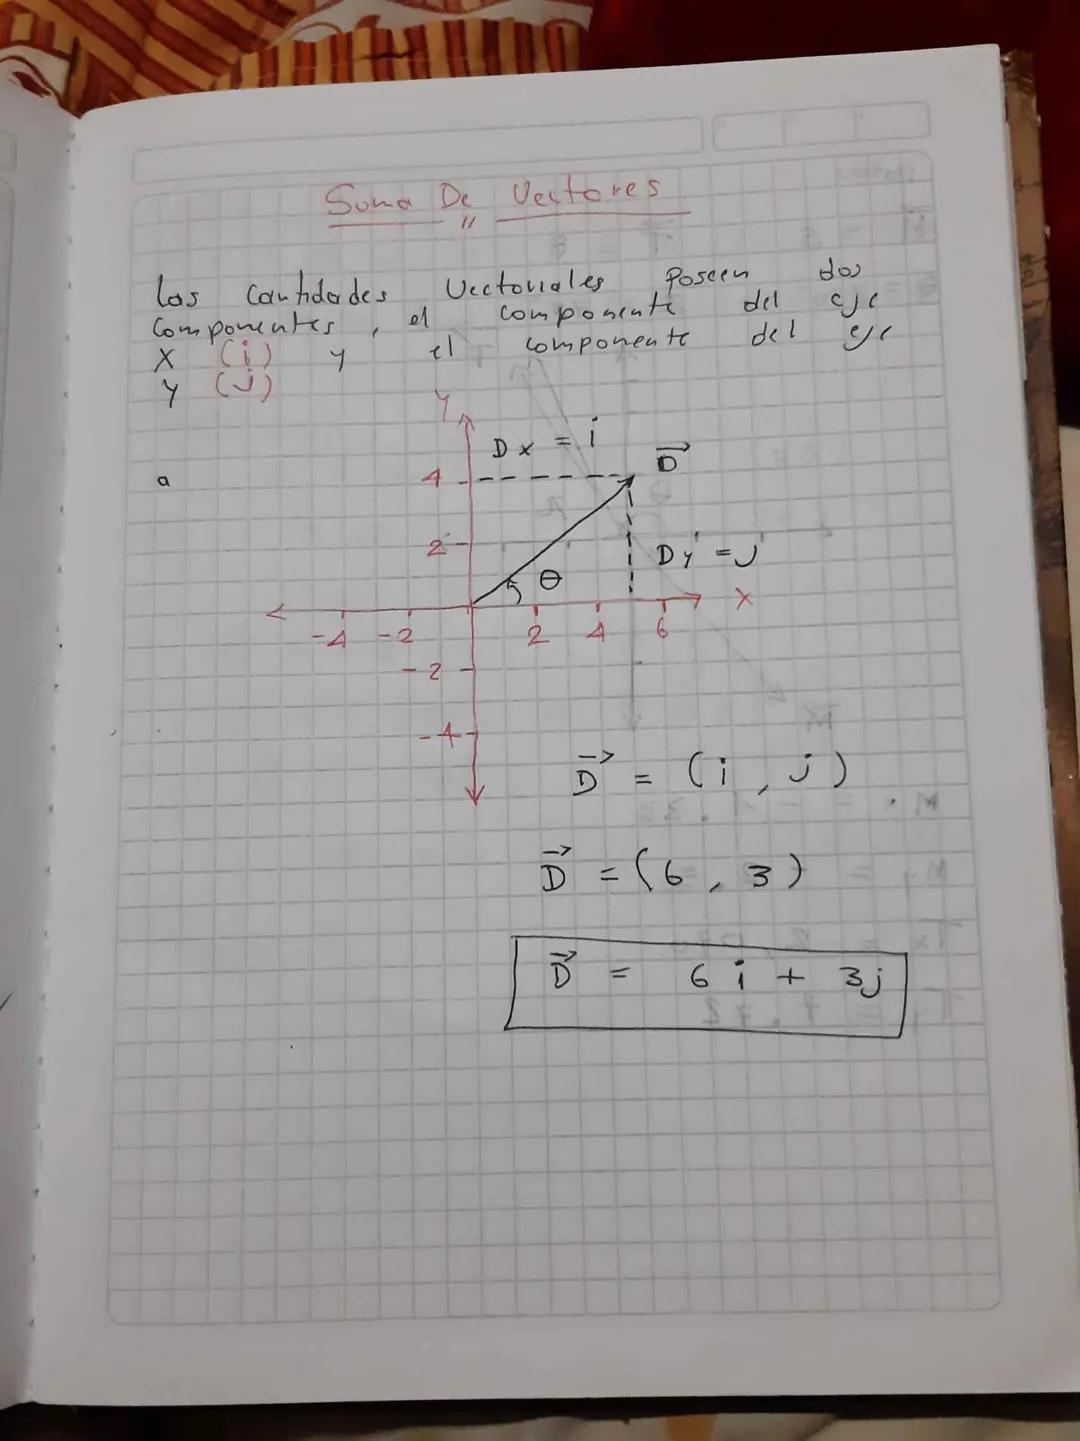 Suma De Vectores
las cantidades Vectoriales Poseen dos
componentes, el componente del eje
X (i) y el componente del eje
Y (j)
Y
Dx = i
D
a
4
2
θ
Dy = j
X
-4 -2 2 4 6
-2
-4
D = (i, j)
D = (6, 3)
D = 6i + 3j